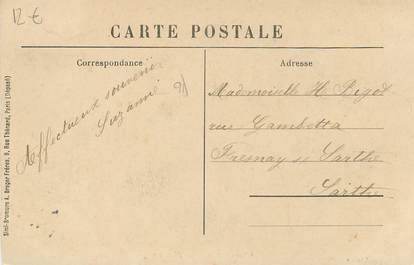 12 €
CARTE POSTALE
Correspondance
Adresse
Affectueux souvenir
Suzanne
Mademoiselle H. Bigot
rue Gambetta
Fresnay s/ Sarthe
Sarthe
Simi-Bromure A. Breger Frères, 9, Rue Thénard, Paris (Déposé)